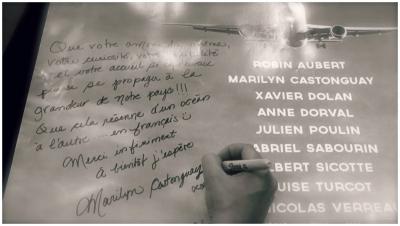 Que votre
votre curiosité, votre
et votre accueil
puisse se propager à la
grandeur de notre pays!!!
Que cela résonne d'un océan
à l'autre... en français
Merci infiniment
à bientôt j'espère
Marilyn Castonguay
ROBIN AUBERT
MARILYN CASTONGUAY
XAVIER DOLAN
ANNE DORVAL
JULIEN POULIN
GABRIEL SABOURIN
LBERT SICOTTE
UISE TURCOT
NICOLAS VERREAU